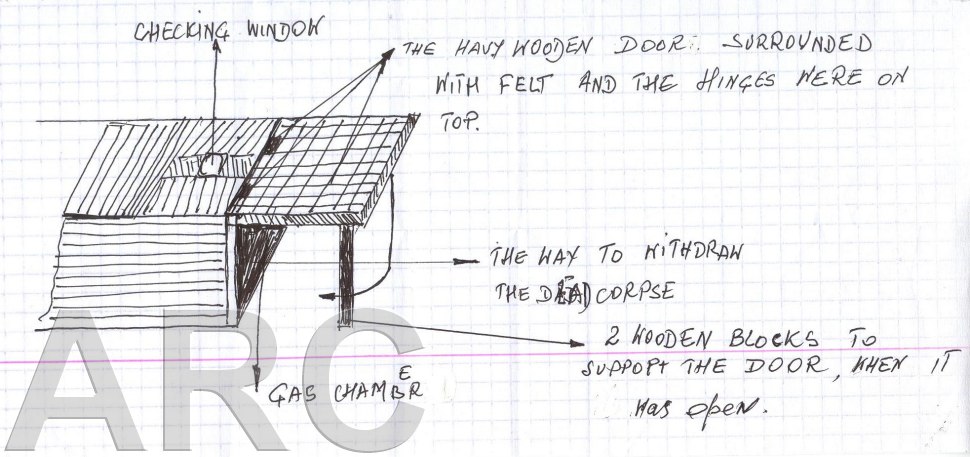 CHECKING WINDOW
THE HAVY WOODEN DOOR. SURROUNDED
WITH FELT AND THE HINGES WERE ON
TOP.
THE WAY TO WITHDRAW
THE DEAD CORPSE
2 WOODEN BLOCKS TO
SUPPORT THE DOOR, WHEN IT
WAS OPEN.
GAS CHAMBER
ARC